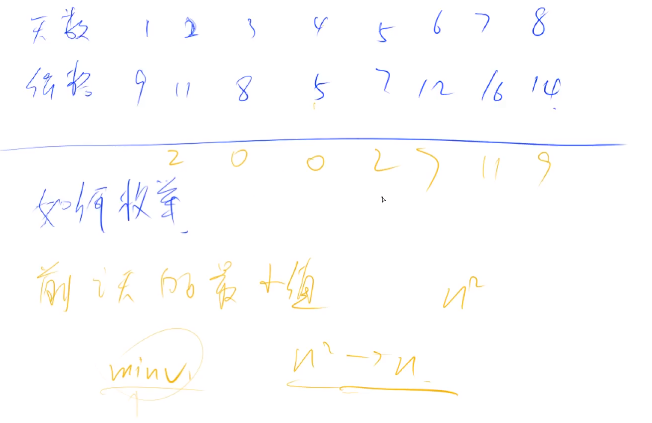 天数 1 2 3 4 5 6 7 8
价格 9 11 8 5 7 12 16 14
2 0 0 2 7 11 9
如何收益
前i天的最小值 n²
minv n² → n